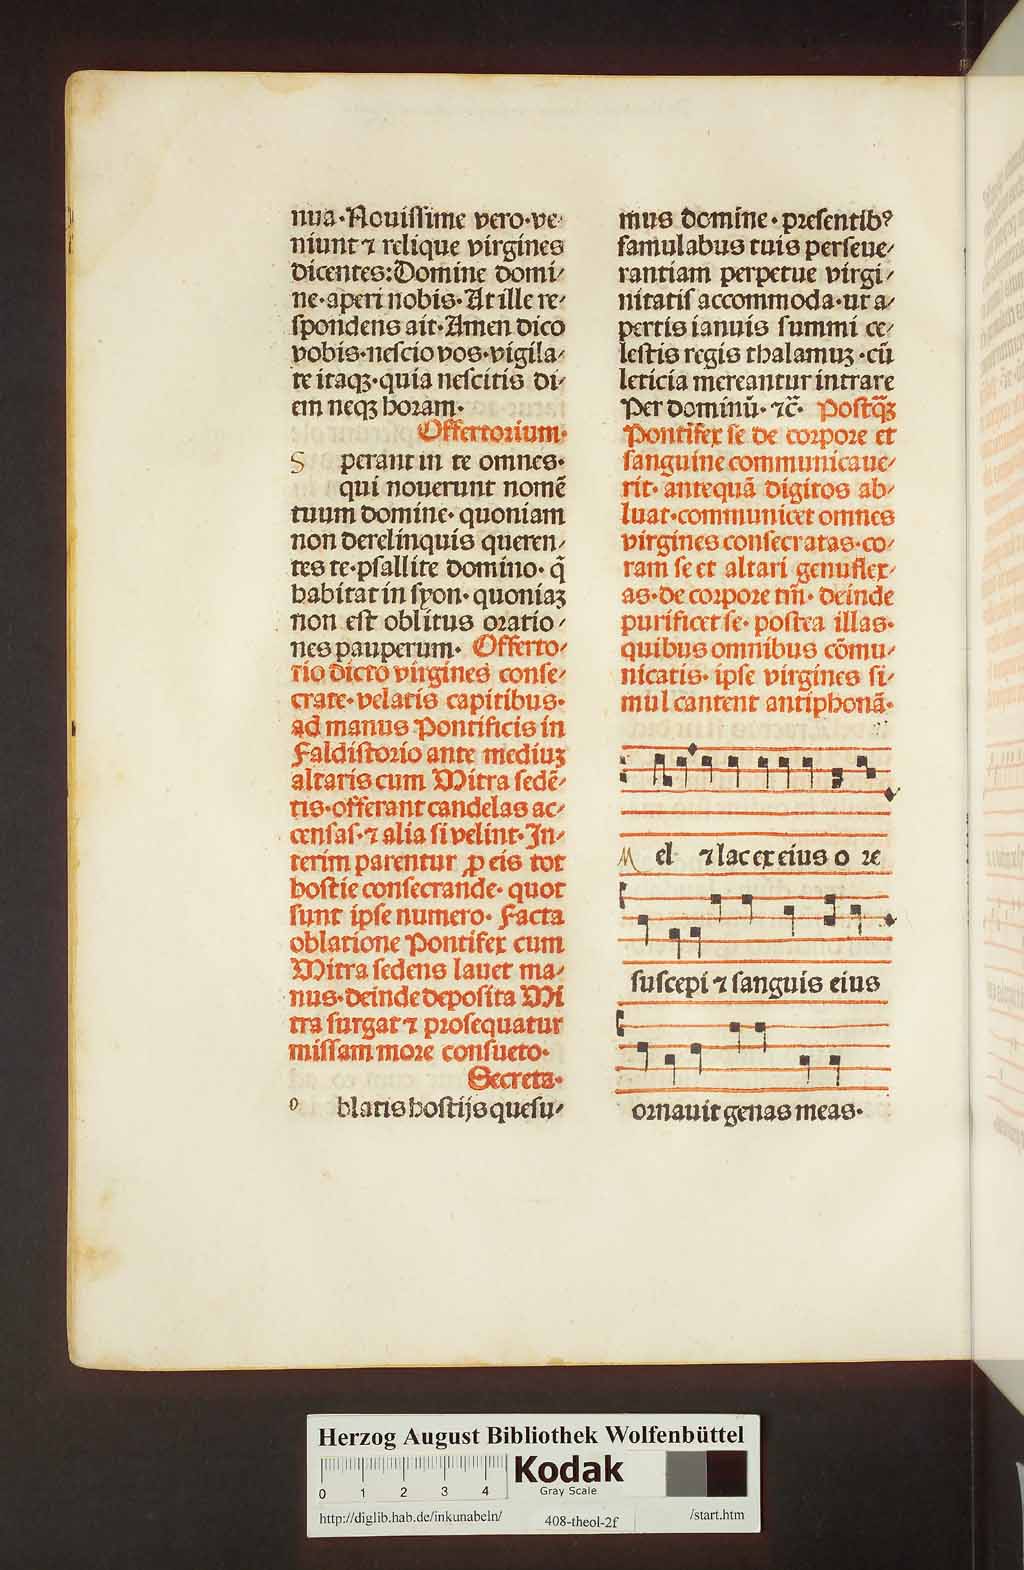 nua·Nouissime vero·ve-
niunt ⁊ relique virgines
dicentes:Domine domi-
ne·aperi nobis·At ille re-
spondens ait·Amen dico
vobis·nescio vos·vigila-
te itaqꝫ·quia nescitis di-
em neqꝫ horam·
Offertorium·
S perant in te omnes·
qui nouerunt nomē
tuum domine·quoniam
non derelinquis queren-
tes te·psallite domino·q̄
habitat in syon·quoniaꝫ
non est oblitus oratio-
nes pauperum· Offerto-
rio dicto virgines conse-
crate·velatis capitibus·
ad manus Pontificis in
Faldistorio ante mediuꝫ
altaris cum Mitra sedē-
tis·offerant candelas ac-
censas·⁊ alia si velint·In-
terim parentur ꝓ eis tot
hostie consecrande·quot
sunt ipse numero·Facta
oblatione Pontifex cum
Mitra sedens lauet ma-
nus·deinde deposita Mi
tra surgat ⁊ prosequatur
missam more consueto·
Secreta·
O blatis hostijs quesu-
mus domine·presentibꝰ
famulabus tuis perseue-
rantiam perpetue virgi-
nitatis accommoda·ut a-
pertis ianuis summi ce-
lestis regis thalamuꝫ·cū
leticia mereantur intrare
Per dominū·⁊c̄· Postq̄ꝫ
Pontifex se de corpore et
sanguine communicaue-
rit·antequā digitos ab-
luat·communicet omnes
virgines consecratas·co-
ram se et altari genuflex-
as·de corpore tm̄·deinde
purificet se·postea illas·
quibus omnibus cōmu-
nicatis·ipse virgines si-
mul cantent antiphonā·
M el ⁊ lac ex eius o re
suscepi ⁊ sanguis eius
ornauit genas meas·
Herzog August Bibliothek Wolfenbüttel
0 1 2 3 4
Kodak
Gray Scale
http://diglib.hab.de/inkunabeln/ 408-theol-2f /start.htm